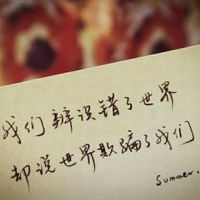 我们辨误错了世界
却说世界欺骗了我们
Summer.